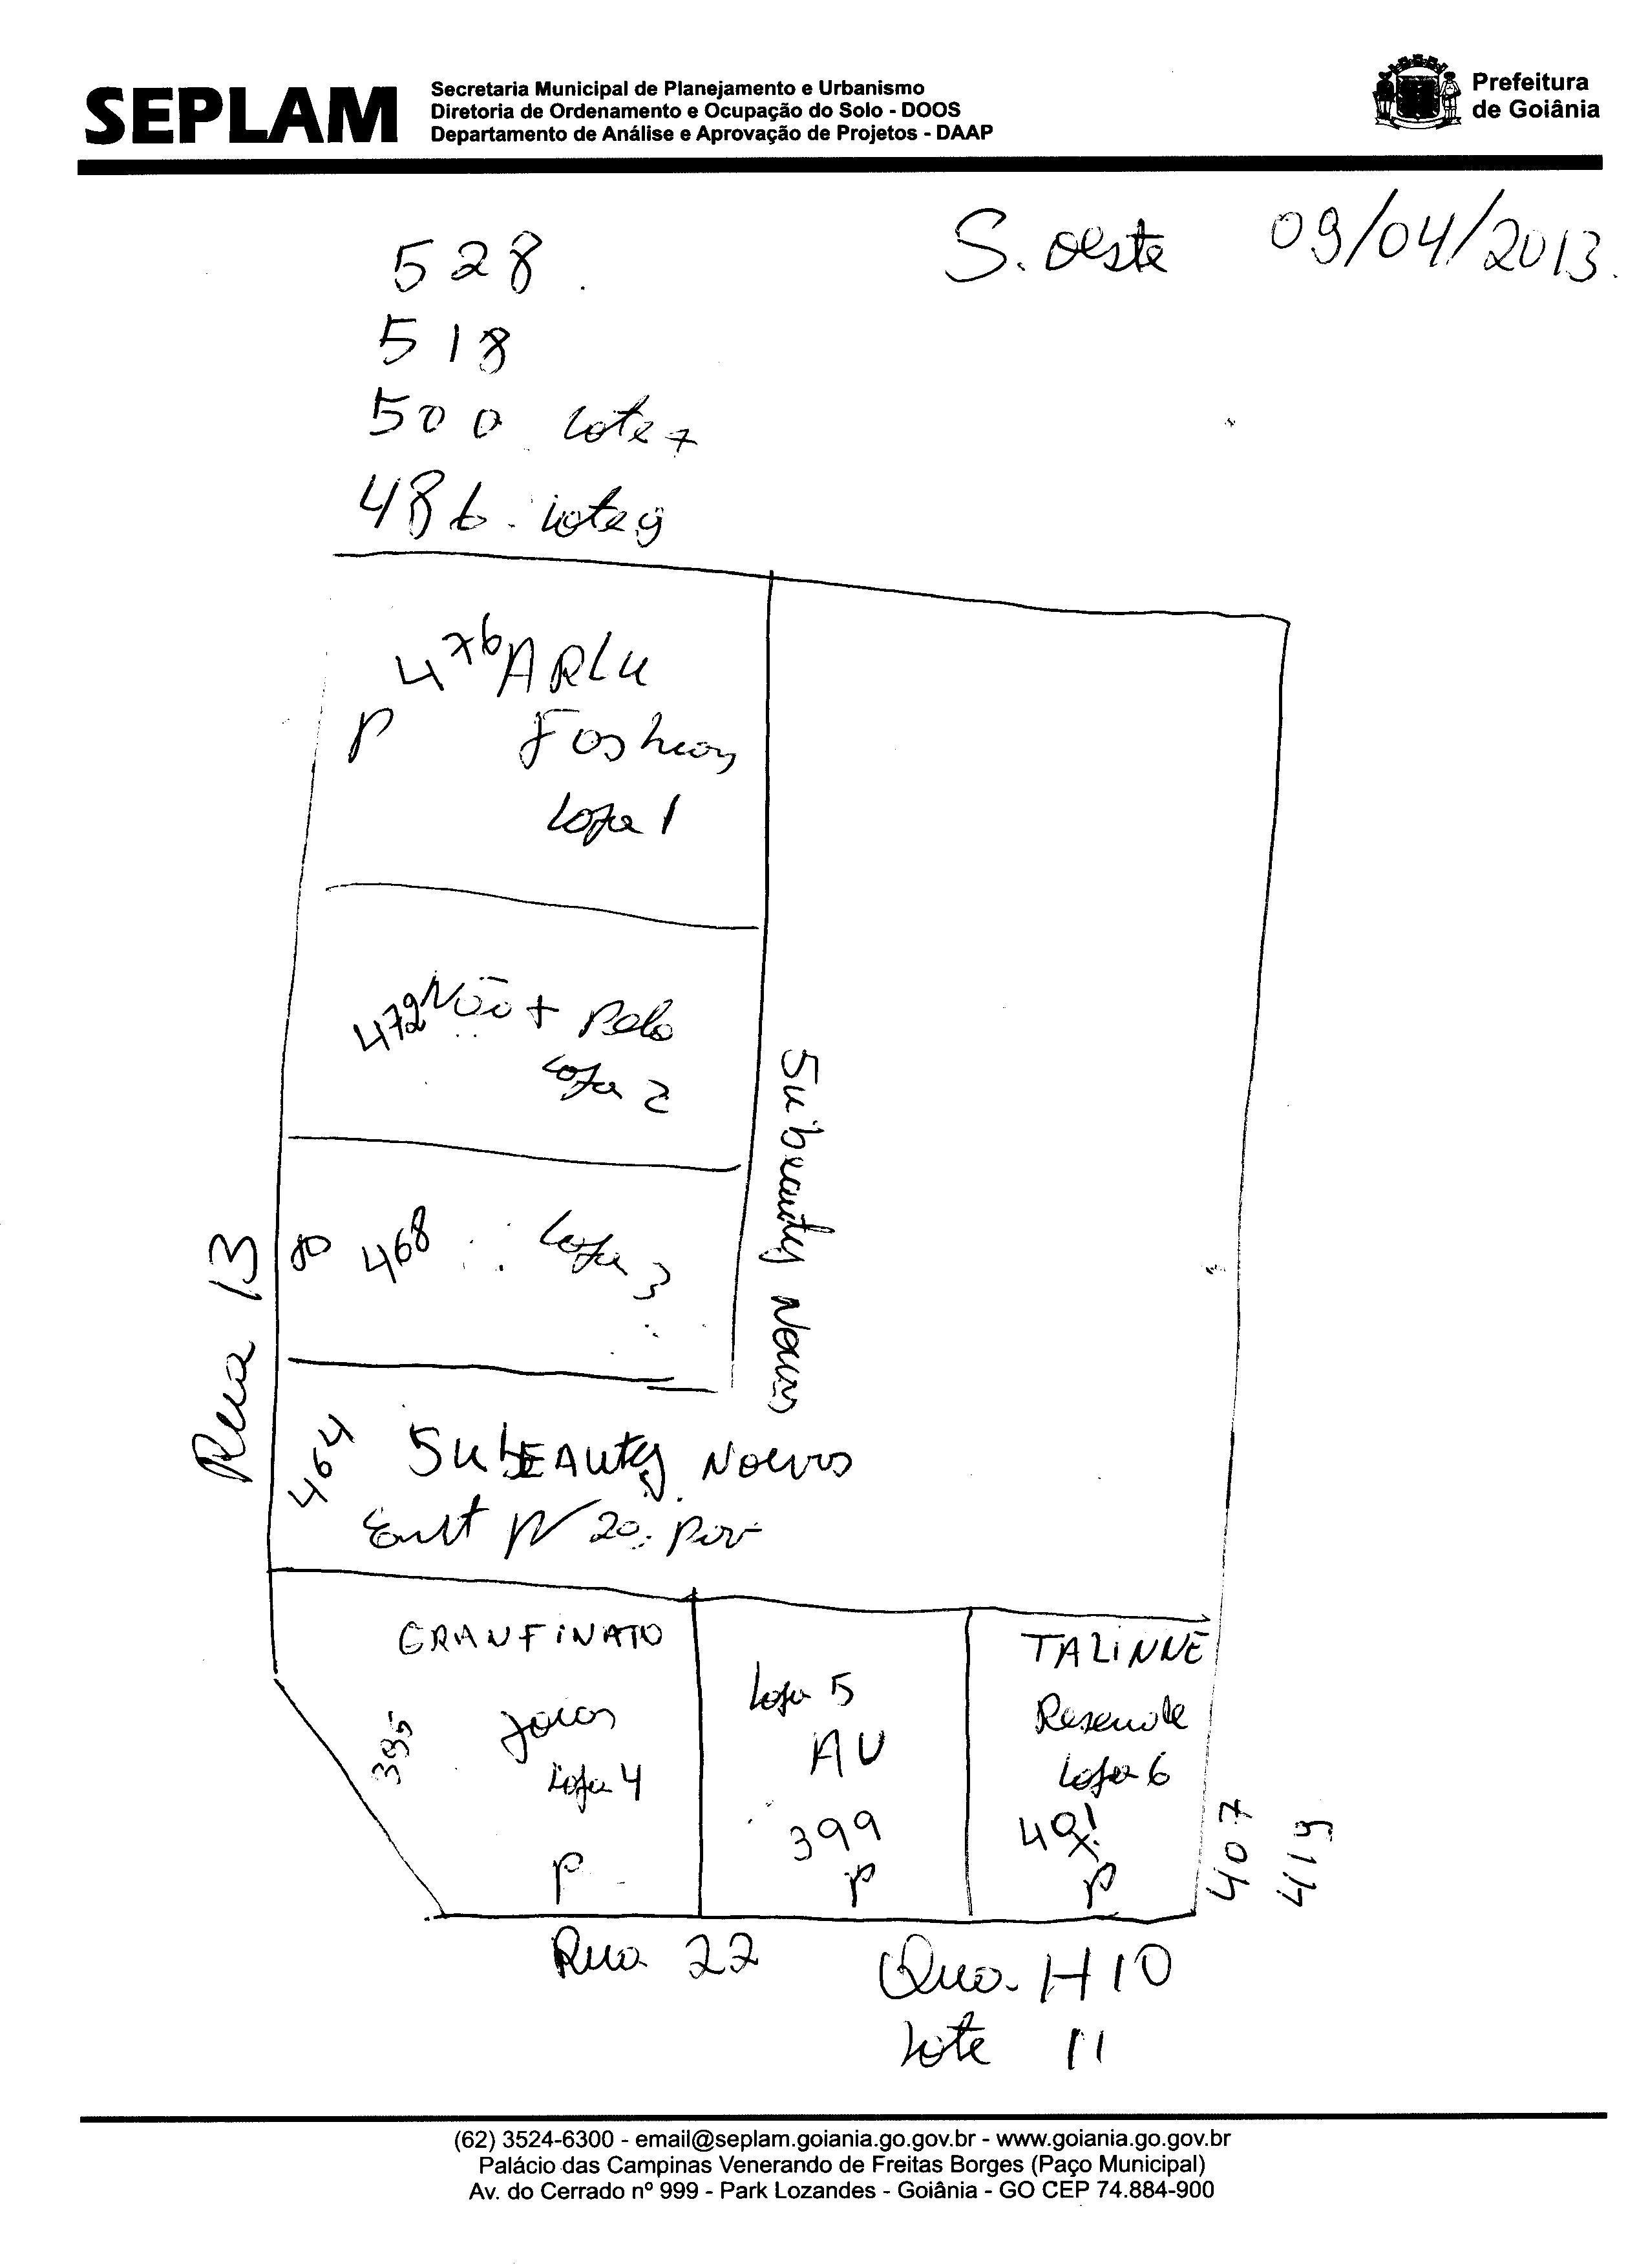 SEPLAM
Secretaria Municipal de Planejamento e Urbanismo
Diretoria de Ordenamento e Ocupação do Solo - DOOS
Departamento de Análise e Aprovação de Projetos - DAAP
Prefeitura
de Goiânia
S. oeste 09/04/2013.
528
518
500 Lote 7
486 Lote 9
476 ARLU
P Fashion
Loja 1
472 Não + Pelo
Loja 2
468 Loja 3
Rua 13
Subeauty Noivas
464
SubEAUTy Noivas
20
GRANFINATO
395 Joias
Loja 4
P
Loja 5
AV
399
P
TALINNE
Resende
Loja 6
401
P
407
419
Rua 22
Qua. H10
Lote 11
(62) 3524-6300 - email@seplam.goiania.go.gov.br - www.goiania.go.gov.br
Palácio das Campinas Venerando de Freitas Borges (Paço Municipal)
Av. do Cerrado nº 999 - Park Lozandes - Goiânia - GO CEP 74.884-900